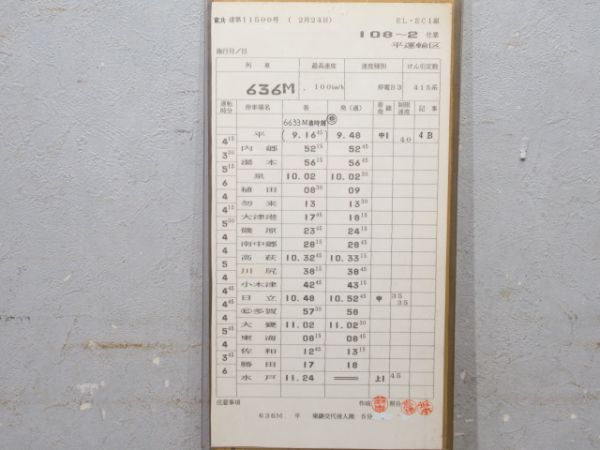 電共 達第11500号 (2月24日) EL・EC1組
108～2 仕業
平運輸区
施行月/日
列車 最高速度 速度種別 けん引定数
636M 100km/h 停電B3 415系
運転時分 停車場名 着 発(通) 着発線 制限速度 記事
6633M進時刻
平 (9.16⁴⁵) 9.48 中1 40 4B
4¹⁵ 内郷 52¹⁵ 52⁴⁵
3³⁰ 湯本 56¹⁵ 56⁴⁵
5¹⁵ 泉 10.02 10.02³⁰
6 植田 08³⁰ 09
4 勿来 13 13³⁰
4¹⁵ 大津港 17⁴⁵ 18¹⁵
5³⁰ 磯原 23⁴⁵ 24¹⁵
4 南中郷 28¹⁵ 28⁴⁵
4 高萩 10.32⁴⁵ 10.33¹⁵
5 川尻 38¹⁵ 38⁴⁵
4 小木津 42⁴⁵ 43¹⁵
4⁴⁵ 日立 10.48 10.52⁴⁵ 中 35 35
4⁴⁵ 多賀 57³⁰ 58
4 大甕 11.02 11.02³⁰
4 東海 08¹⁵ 08⁴⁵
4 佐和 12⁴⁵ 13¹⁵
3⁴⁵ 勝田 17 18
6 水戸 11.24 上1 45
注意事項 作成 照合
636M 平 乗継交代後入換 5分